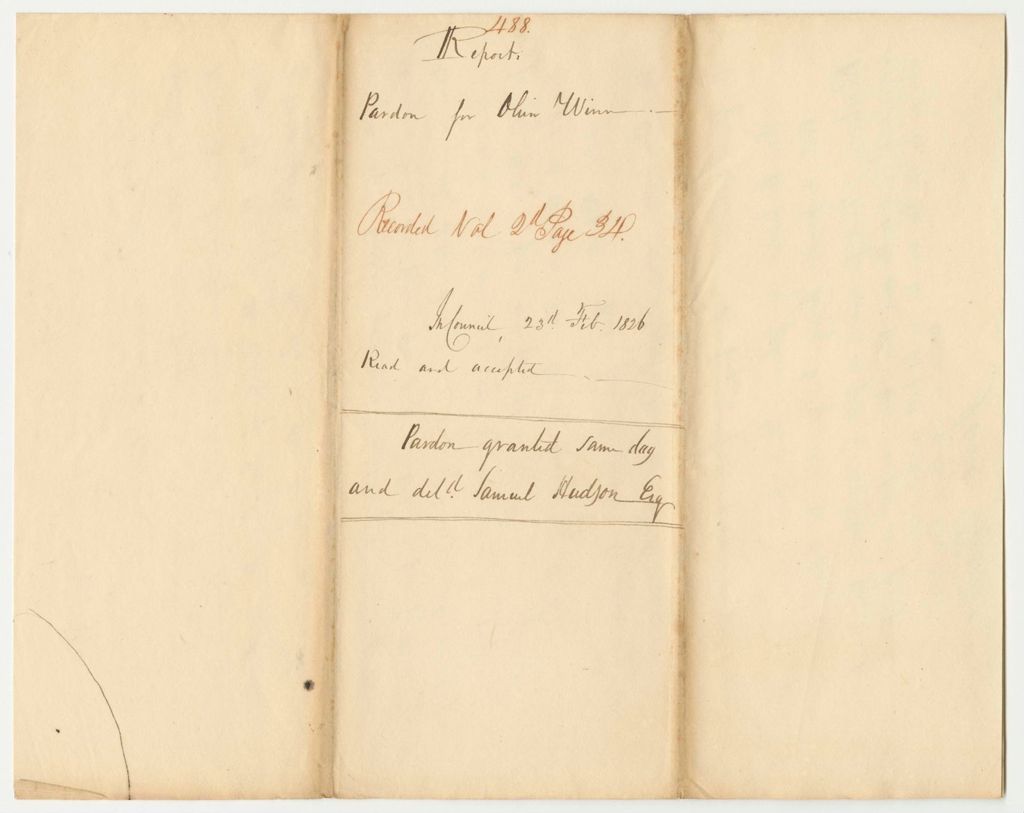 488.
Report.
Pardon for Olvin Winn
Recorded Vol 2d Page 34.
In Council, 23d Feb. 1826
Read and accepted
Pardon granted same day
and deld. Samuel Hudson Esq